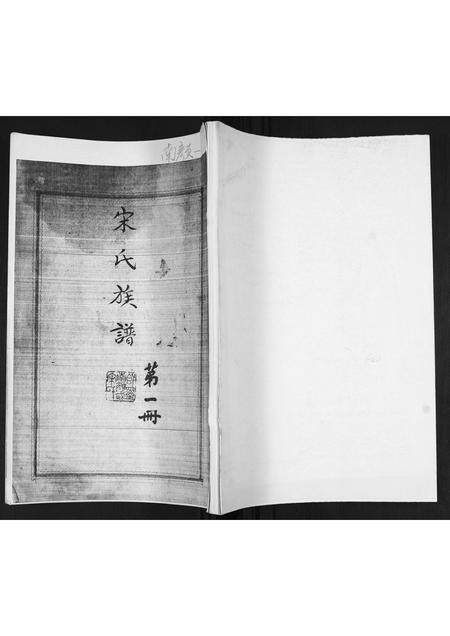 南颜一
宋氏族譜
第一冊